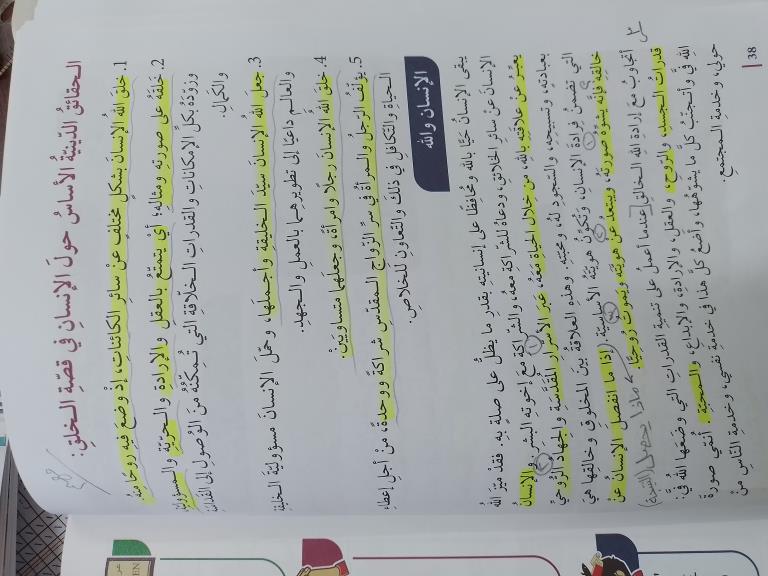 الحقائق الدّينيّة الأساس حول الإنسان في قصّة الخلق:
1. خلق الله الإنسان بشكل مختلف عن سائر الكائنات، إذ وضع فيه روحا منه
2. خلقه على صورته ومثاله؛ أيْ يتمتّع بالعقل والإرادة والحرّيّة والمسؤوليّة
وزوّده بكلّ الإمكانات والقدرات الخلّاقة التي تُمكّنه من الوصول إلى القداسة
والكمال.
3. جعل الله الإنسان سيّد الخليقة وأجملها، وحمّل الإنسان مسؤوليّة الخليقة
والعالم داعيًا إلى تطويرهما بالعمل والجهد.
4. خلق الله الإنسان رجلًا وامرأة، وجعلهما متساويين.
5. يؤلّف الرّجل والمرأة في سرّ الزّواج المقدّس شراكة ووحدة، من أجل إعطاء
الحياة والتّكافل في ذلك والتّعاون للخلاص.
الإنسان والله
يبقى الإنسان حيًّا بالله ومُحافظًا على إنسانيّته بقدر ما يظلّ على صلة به. فقد ميّز الله
الإنسان عن سائر الخلائق، ودعاه للشّراكة معه، والشّراكة مع إخوته البشر. والإنسان
يعبّر عن علاقته بالله، من خلال الحياة معه، عبر الأسرار المقدّسة والجهاد الرّوحيّ
بعبادته، وتسبيحه، والسّجود له، ومحبّته. وهذه العلاقة بين المخلوق وخالقها هي
التي تضمن فرادة الإنسان، وتكوّن هويّته الأساسيّة. إذا ما انفصل الإنسان عن
خالقه فإنّه يشوّه صورته ويبتعد عن هويّته ويموت روحيًّا. ماذا يحصل (النتيجة)
أتجاوب مع إرادة الله الخالق عندما أعمل على تنمية القدرات التي وضعها الله فيّ:
قدرات الجسد، والرّوح، والعقل، والإرادة، والإبداع، والمحبّة. أنمّي صورة
الله فيّ وأتجنّب كلّ ما يشوّهها، وأضع كلّ هذا في خدمة نفسي، وخدمة النّاس من
حولي، وخدمة المجتمع.
38